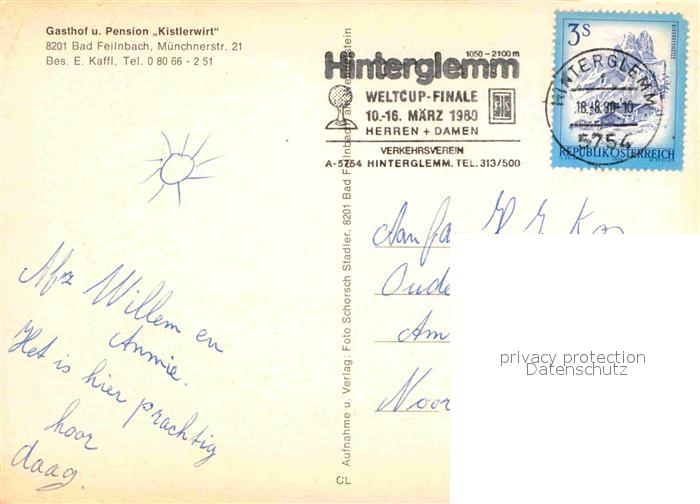 Gasthof u. Pension „Kistlerwirt"
8201 Bad Feilnbach, Münchnerstr. 21
Bes. E. Kaffl, Tel. 0 80 66 - 2 51
1050 - 2100 m
Hinterglemm
WELTCUP-FINALE
10.-16. MÄRZ 1980
HERREN + DAMEN
FIS
VERKEHRSVEREIN
A-5754 HINTERGLEMM. TEL. 313/500
3S
HINTERGLEMM
18.-8.80-10
5754
REPUBLIK ÖSTERREICH
Afz Willem en
Annie.
Het is hier prachtig
hoor
daag.
Aan fa
Oude
Am
Noor
privacy protection
Datenschutz
Aufnahme u. Verlag: Foto Schorsch Stadler, 8201 Bad Feilnbach am Wendelstein
CL